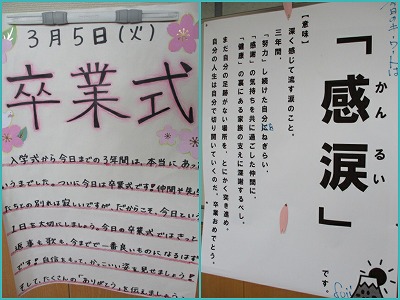 3月5日(火)
卒業式
入学式から今日までの3年間は、本当にあっ
いうまでした。ついに今日は卒業式です!仲間や先
たちとの別れは寂しいですが、だからこそ、今日という
1日を大切にしましょう。今日の卒業式ではきっと
返事も歌も、今までで一番良いものになるはず
です!自信をもって、かっこいい姿を見せましょう!
そして、たくさんの「ありがとう」を伝えましょう。
今日のキーワードは
「感涙」
かんるい
です。
【意味】
深く感じて流す涙のこと。
三年間、
「努力」し続けた自分にねぎらい、
「感謝」の気持ちを共に過ごした仲間に、
「健康」の裏にある家族の支えに深謝するべし。
まだ自分の足跡がない場所を、とにかく突き進め。
自分の人生は自分で切り開いていくのだ。卒業おめでとう。